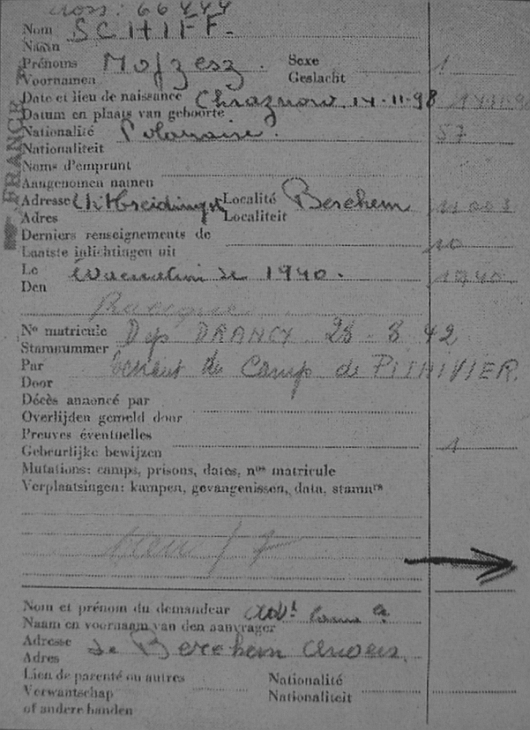 66444
Nom SCHIFF.
Naam
Prénoms Mojzesz. Sexe 1
Voornamen Geslacht
Date et lieu de naissance Chrzanow 14-11-98
Datum en plaats van geboorte
Nationalité Polonaise. 57
Nationaliteit
Noms d'emprunt
Aangenomen namen
Adresse Uitbreidingst Localité Berchem
Adres Localiteit
Derniers renseignements de 10
Laatste inlichtingen uit
Le Evacuation de 1940. 1940
Den
Nº matricule Dep DRANCY 28-8 42
Stamnummer
Par de Camp de PITHIVIER.
Door
Décès annoncé par
Overlijden gemeld door
Preuves éventuelles 1
Gebeurlijke bewijzen
Mutations: camps, prisons, dates, nºs matricule
Verplaatsingen: kampen, gevangenissen, data, stamnrs
Nom et prénom du demandeur
Naam en voornaam van den aanvrager
Adresse de Berchem Anvers.
Adres
Lien de parenté ou autres Nationalité
Verwantschap Nationaliteit
of andere banden
FRANCE